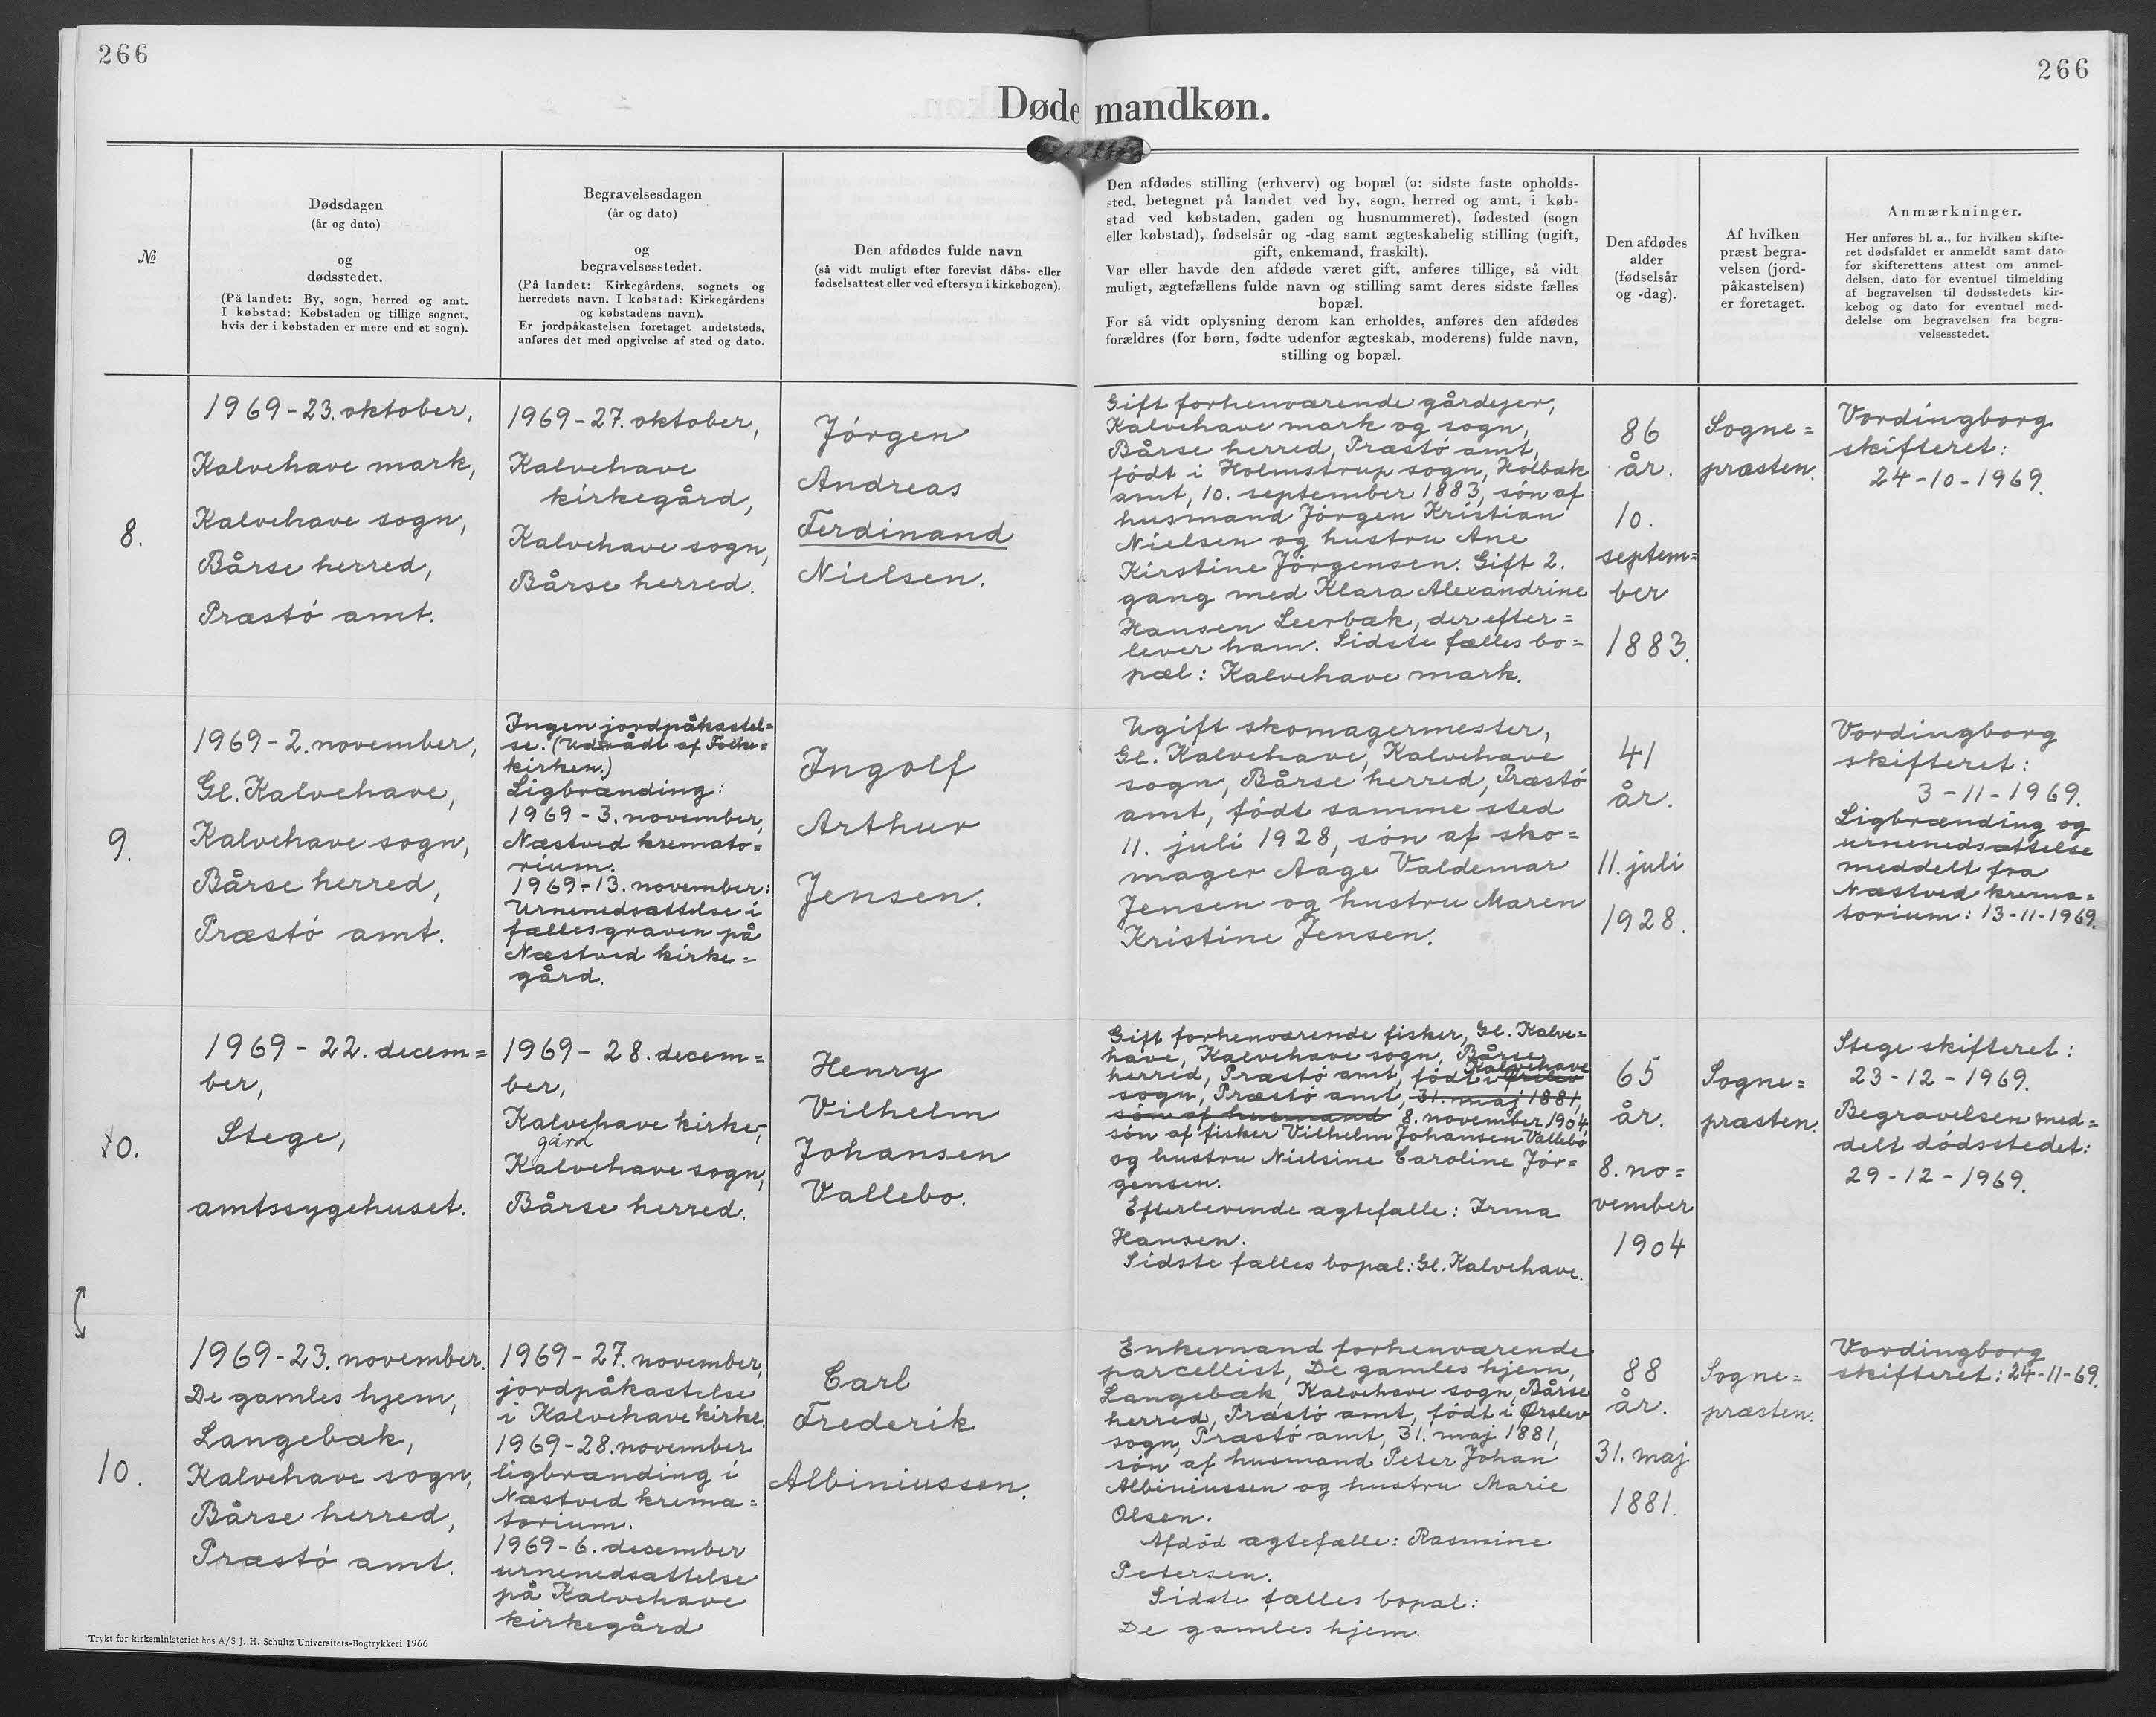 266
266
Døde mandkøn.
№
Dødsdagen
(år og dato)
og
dødsstedet.
(På landet: By, sogn, herred og amt.
I købstad: Købstaden og tillige sognet,
hvis der i købstaden er mere end et sogn).
Begravelsesdagen
(år og dato)
og
begravelsesstedet.
(På landet: Kirkegårdens, sognets og
herredets navn. I købstad: Kirkegårdens
og købstadens navn).
Er jordpåkastelsen foretaget andetsteds,
anføres det med opgivelse af sted og dato.
Den afdødes fulde navn
(så vidt muligt efter forevist dåbs- eller
fødselsattest eller ved eftersyn i kirkebogen).
Den afdødes stilling (erhverv) og bopæl (ɔ: sidste faste opholds-
sted, betegnet på landet ved by, sogn, herred og amt, i køb-
stad ved købstaden, gaden og husnummeret), fødested (sogn
eller købstad), fødselsår og -dag samt ægteskabelig stilling (ugift,
gift, enkemand, fraskilt).
Var eller havde den afdøde været gift, anføres tillige, så vidt
muligt, ægtefællens fulde navn og stilling samt deres sidste fælles
bopæl.
For så vidt oplysning derom kan erholdes, anføres den afdødes
forældres (for børn, fødte udenfor ægteskab, moderens) fulde navn,
stilling og bopæl.
Den afdødes
alder
(fødselsår
og -dag).
Af hvilken
præst begra-
velsen (jord-
påkastelsen)
er foretaget.
Anmærkninger.
Her anføres bl. a., for hvilken skifte-
ret dødsfaldet er anmeldt samt dato
for skifterettens attest om anmel-
delsen, dato for eventuel tilmelding
af begravelsen til dødsstedets kir-
kebog og dato for eventuel med-
delelse om begravelsen fra begra-
velsesstedet.
8.
1969-23. oktober,
Kalvehave mark,
Kalvehave sogn,
Bårse herred,
Præstö amt.
1969-27. oktober,
Kalvehave
kirkegård,
Kalvehave sogn,
Bårse herred.
Jörgen
Andreas
Ferdinand
Nielsen.
Gift forhenværende gårdejer,
Kalvehave mark og sogn,
Bårse herred, Præstö amt,
födt i Holmstrup sogn, Holbæk
amt, 10. september 1883, sön af
husmand Jörgen Kristian
Nielsen og hustru Ane
Kirstine Jörgensen. Gift 2.
gang med Klara Alexandrine
Hansen Leerbæk, der efter=
lever ham. Sidste fælles bo=
pæl: Kalvehave mark.
86
år.
10.
septem=
ber
1883.
Sogne=
præsten.
Vordingborg
skifteret:
24-10-1969.
9.
1969-2. november,
Gl. Kalvehave,
Kalvehave sogn,
Bårse herred,
Præstö amt.
Ingen jordpåkastel=
se. (Udtrådt af Folke=
kirken.)
Ligbrænding:
1969-3. november,
Næstved kremato=
rium.
1969-13. november:
Urnenedsættelse i
fællesgraven på
Næstved kirke=
gård.
Ingolf
Arthur
Jensen.
Ugift skomagermester,
Gl. Kalvehave, Kalvehave
sogn, Bårse herred, Præstö
amt, födt samme sted
11. juli 1928, sön af sko=
mager Aage Valdemar
Jensen og hustru Maren
Kristine Jensen.
41
år.
11. juli
1928.
Vordingborg
skifteret:
3-11-1969.
Ligbrænding og
urnenedsættelse
meddelt fra
Næstved krema=
torium: 13-11-1969.
10.
1969-22. decem=
ber,
Stege,
amtssygehuset.
1969-28. decem=
ber,
Kalvehave kirke,
gård
Kalvehave sogn,
Bårse herred.
Henry
Vilhelm
Johansen
Vallebo.
Gift forhenværende fisker, Gl. Kalve=
have, Kalvehave sogn, Bårse
Kalvehave
herred, Præstö amt, födt i Ørslev
sogn, Præstö amt, 31. maj 1881,
sön af husmand 8. november 1904
sön af fisker Vilhelm Johansen Vallebo
og hustru Nielsine Caroline Jör=
gensen.
Efterlevende ægtefælle: Irma
Hansen.
Sidste fælles bopæl: Gl. Kalvehave.
65
år.
8. no=
vember
1904
Sogne=
præsten.
Stege skifteret:
23-12-1969.
Begravelsen med=
delt dödsstedet:
29-12-1969.
10.
1969-23. november.
De gamles hjem,
Langebæk,
Kalvehave sogn,
Bårse herred,
Præstö amt.
1969-27. november,
jordpåkastelse
i Kalvehave kirke.
1969-28. november
ligbrænding i
Næstved krema=
torium.
1969-6. december
urnenedsættelse
på Kalvehave
kirkegård
Carl
Frederik
Albiniussen.
Enkemand forhenværende
parcellist, De gamles hjem,
Langebæk, Kalvehave sogn, Bårse
herred, Præstö amt, födt i Ørslev
sogn, Præstö amt, 31. maj 1881,
sön af husmand Peter Johan
Albiniussen og hustru Marie
Olsen.
Afdöd ægtefælle: Rasmine
Petersen.
Sidste fælles bopæl:
De gamles hjem.
88
år.
31. maj
1881.
Sogne=
præsten.
Vordingborg
skifteret: 24-11-69.
Trykt for kirkeministeriet hos A/S J. H. Schultz Universitets-Bogtrykkeri 1966